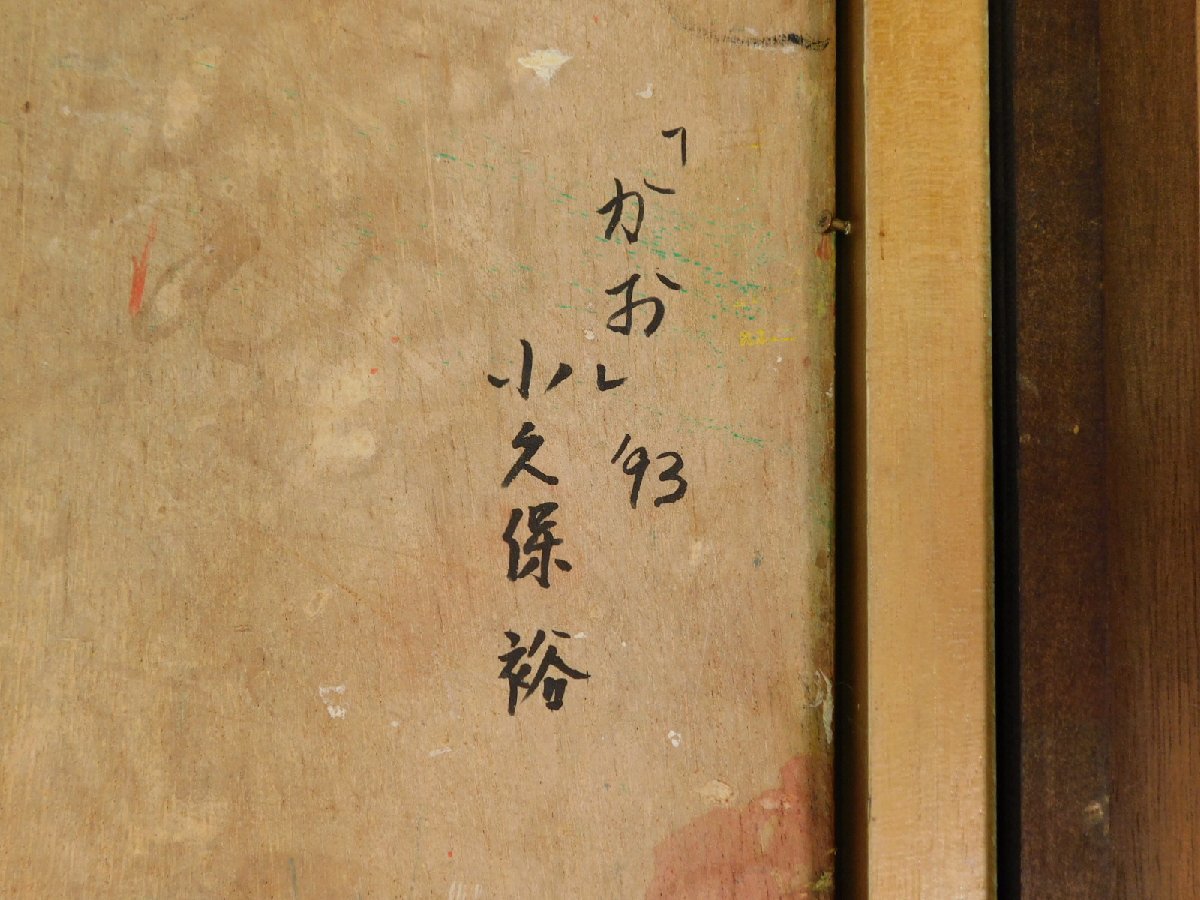 「かお」 '93
小久保裕